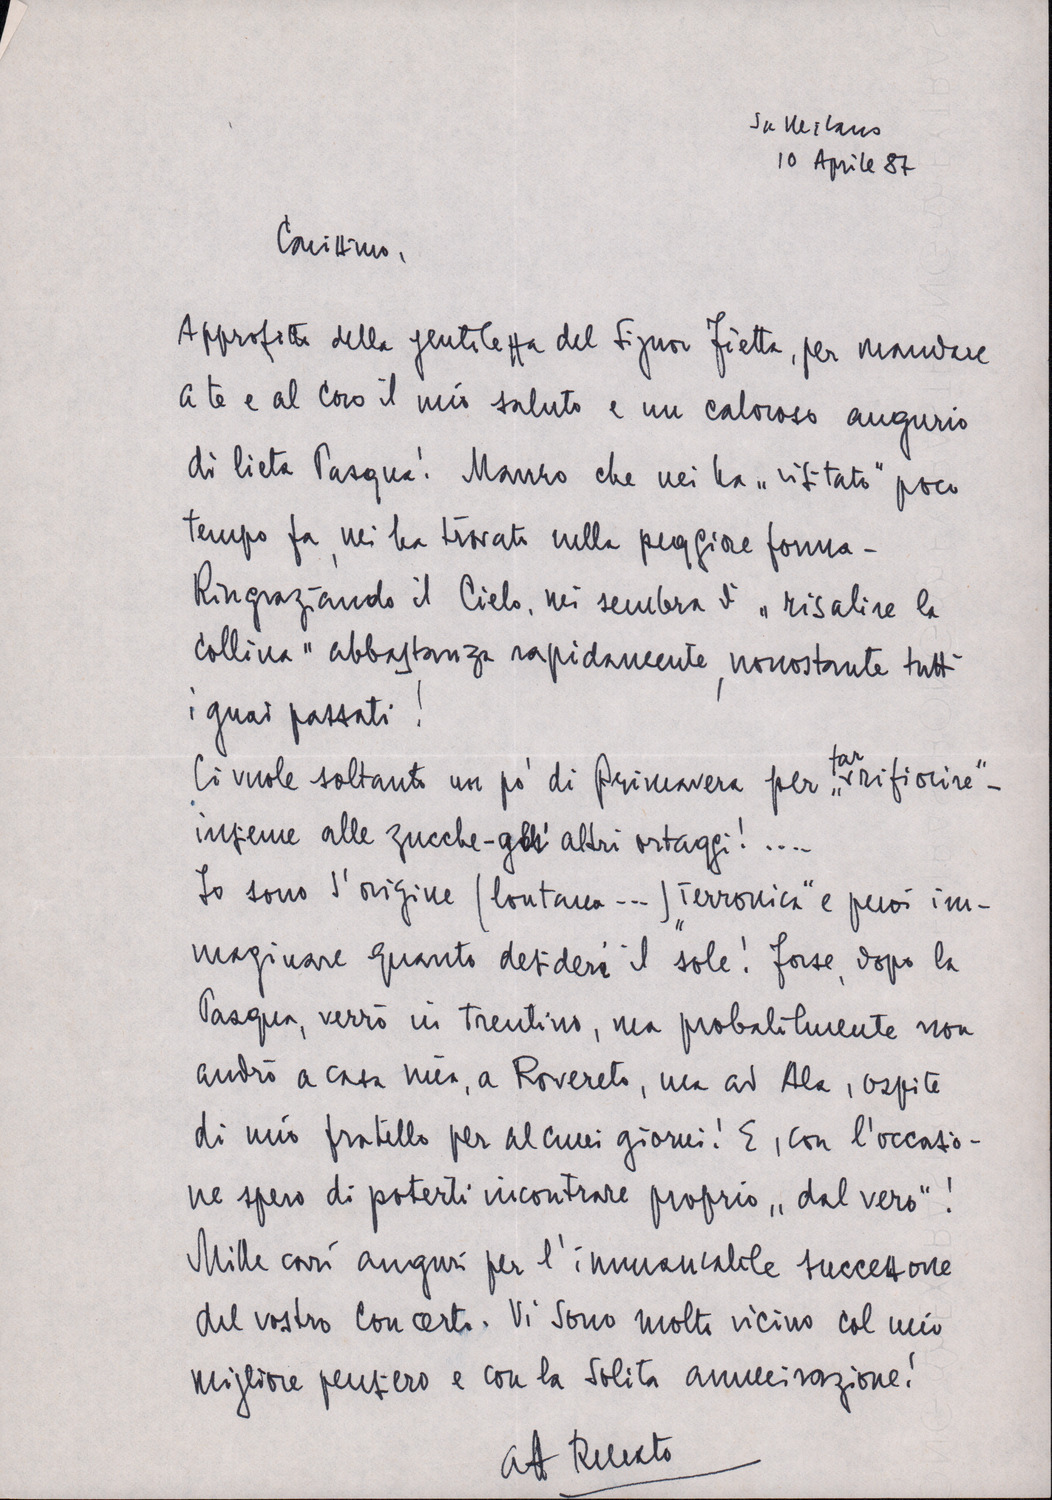 Da Milano
10 Aprile 87
Carissimo,
Approfitto della gentilezza del Signor Fietta, per mandare
a te e al Coro il mio saluto e un caloroso augurio
di lieta Pasqua! Mauro che mi ha „visitato" poco
tempo fa, mi ha trovato nella peggiore forma -
Ringraziando il Cielo, mi sembra di „risalire la
collina" abbastanza rapidamente, nonostante tutti
i guai passati!
Ci vuole soltanto un pò di Primavera per „far rifiorire" -
insieme alle zucche - gli altri ortaggi! ....
Io sono d'origine (lontana ---) „Terronica" e puoi im-
maginare quanto desideri il sole! Forse, dopo la
Pasqua, verrò in Trentino, ma probabilmente non
andrò a casa mia, a Rovereto, ma ad Ala, ospite
di mio fratello per alcuni giorni! E, con l'occasio-
ne spero di poterti incontrare proprio „dal vero"!
Mille cari auguri per l'immancabile successone
del vostro Concerto. Vi sono molto vicino col mio
migliore pensiero e con la solita ammirazione!
aff